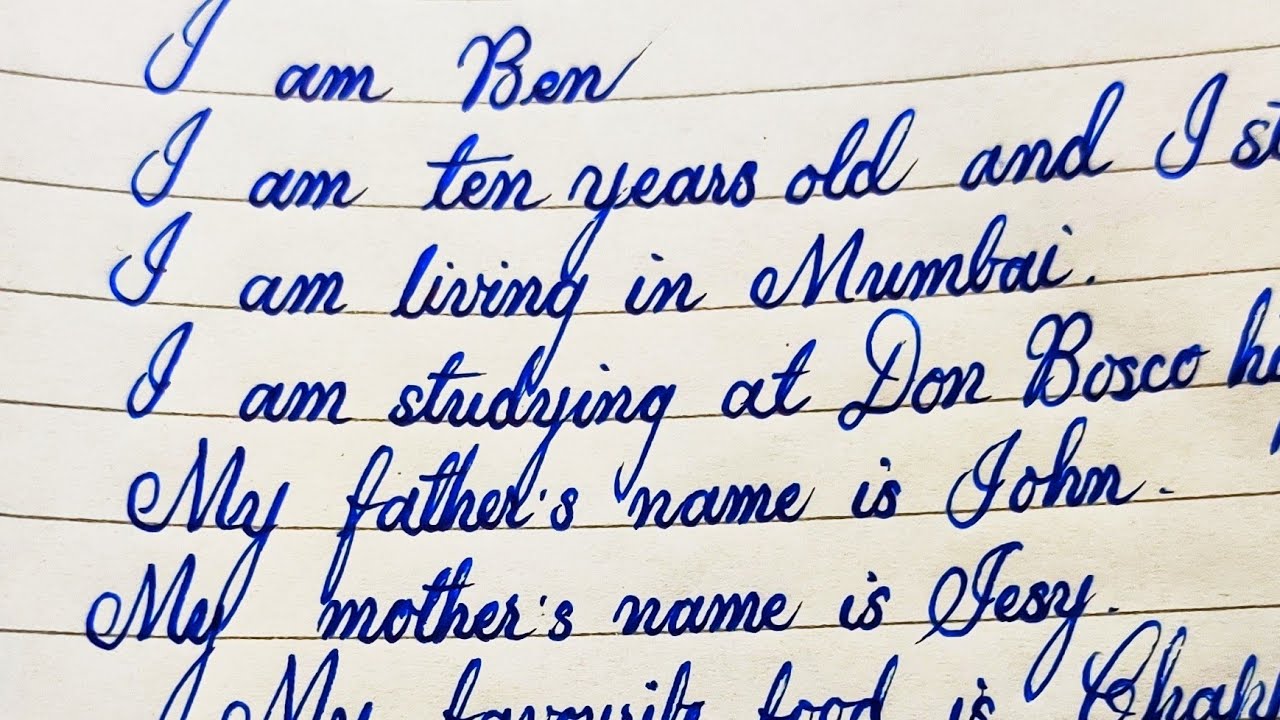 I am Ben
I am ten years old and I st
I am living in Mumbai.
I am studying at Don Bosco h
My father's name is John.
My mother's name is Jesy.
My favourite food is Chap